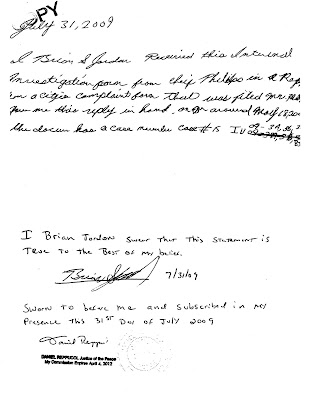 PY
July 31, 2009
I Brian S Jordan Received this Internal
Investigation form from chief Phillips in a Rep
on a citizen complaint form that was filed
me this reply in hand, on or around May 18, 200
the docum has a case number case # is IU
I Brian Jordan swear that This Statement is
True to the Best of my belief.
7/31/09
Sworn to before me and subscribed in my
Presence this 31ST Day of July 2009
DANIEL REPPUCCI, Justice of the Peace
My Commission Expires April 4, 2012